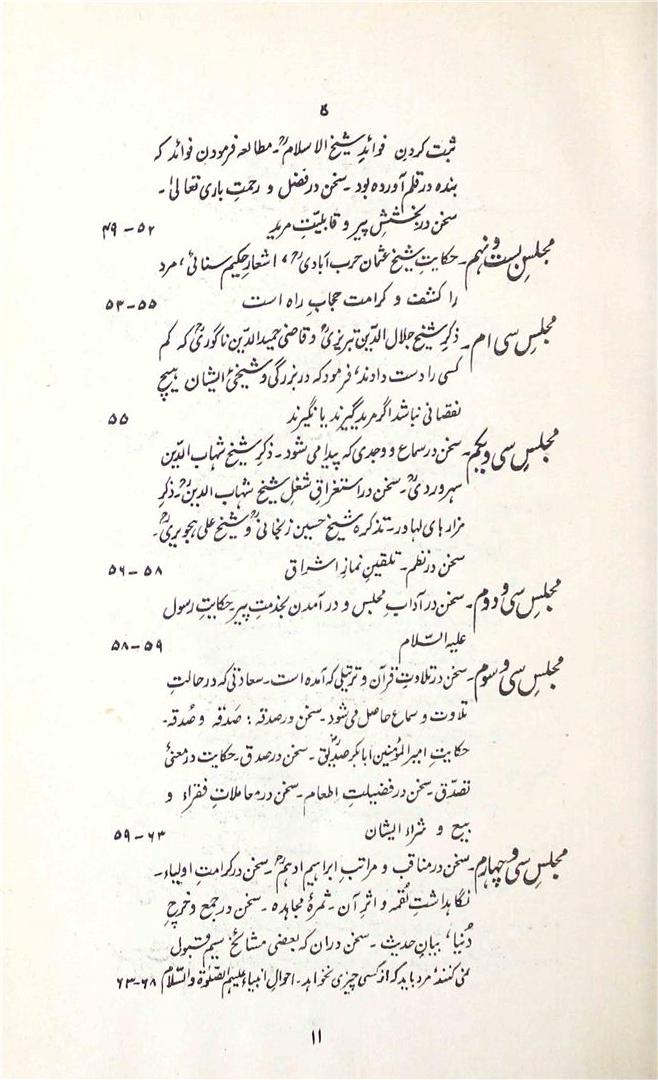 ثبت کردن فوائدِ شیخ الاسلامؒ۔ مطالعہ فرمودن فوائد کہ
بندہ در قلم آوردہ بود۔ سخن در فضل و رحمتِ باری تعالیٰ۔
سخن در بخششِ پیر و قابلیّتِ مرید ۵۲-۴۹
مجلسِ بست و نہم۔ حکایتِ شیخ عثمان حرب آبادیؒ، اشعارِ حکیم سنائی، مرد
را کشف و کرامت حجابِ راہ است ۵۵-۵۳
مجلسِ سی ام۔ ذکرِ شیخ جلال الدّین تبریزیؒ و قاضی حمید الدّین ناگوریؒ کہ کم
کسی را دست دادند، فرمود کہ در بزرگی و شیخیٔ ایشان ہیچ
نقصانی نباشد اگر مرید گیرند یا نگیرند ۵۵
مجلسِ سی و یکم۔ سخن در سماع و وجدی کہ پیدا می شود۔ ذکرِ شیخ شہاب الدّین
سہروردیؒ۔ سخن در استغراقِ شغلِ شیخ شہاب الدینؒ۔ ذکرِ
مزار ہای لہاور۔ تذکرہ شیخ حسین زنجانیؒ و شیخ علی ہجویریؒ۔
سخن در نظم۔ تلقینِ نمازِ اشراق ۵۸-۵۶
مجلسِ سی و دوم۔ سخن در آدابِ مجلس و در آمدن بخدمتِ پیر۔ حکایتِ رسول
علیہ السّلام ۵۹-۵۸
مجلسِ سی و سوم۔ سخن در تلاوتِ قرآن و ترتیلی کہ آمدہ است۔ سعادتی کہ در حالتِ
تلاوت و سماع حاصل می شود۔ سخن در صدقہ: صَدقہ و صُدقہ۔
حکایتِ امیر المؤمنین ابابکر صدیقؓ۔ سخن در صدق۔ حکایت در معنیٔ
تصدّق۔ سخن در فضیلتِ اطعام۔ سخن در معاملاتِ فقراء و
بیع و شراء ایشان ۶۳-۵۹
مجلسِ سی و چہارم۔ سخن در مناقب و مراتبِ ابراہیم ادہمؒ۔ سخن در کرامتِ اولیاء۔
نگاہداشتِ لُقمہ و اثرِ آن۔ ثمرۂ مجاہدہ۔ سخن در جمع و خرچِ
دُنیا، بیانِ حدیث۔ سخن دران کہ بعضی مشائخ سیم قبول
نمی کنند، مرد باید کہ از کسی چیزی نخواہد۔ احوالِ انبیاء علیہم الصّلوٰۃ والسّلام ۶۸-۶۳
۱۱